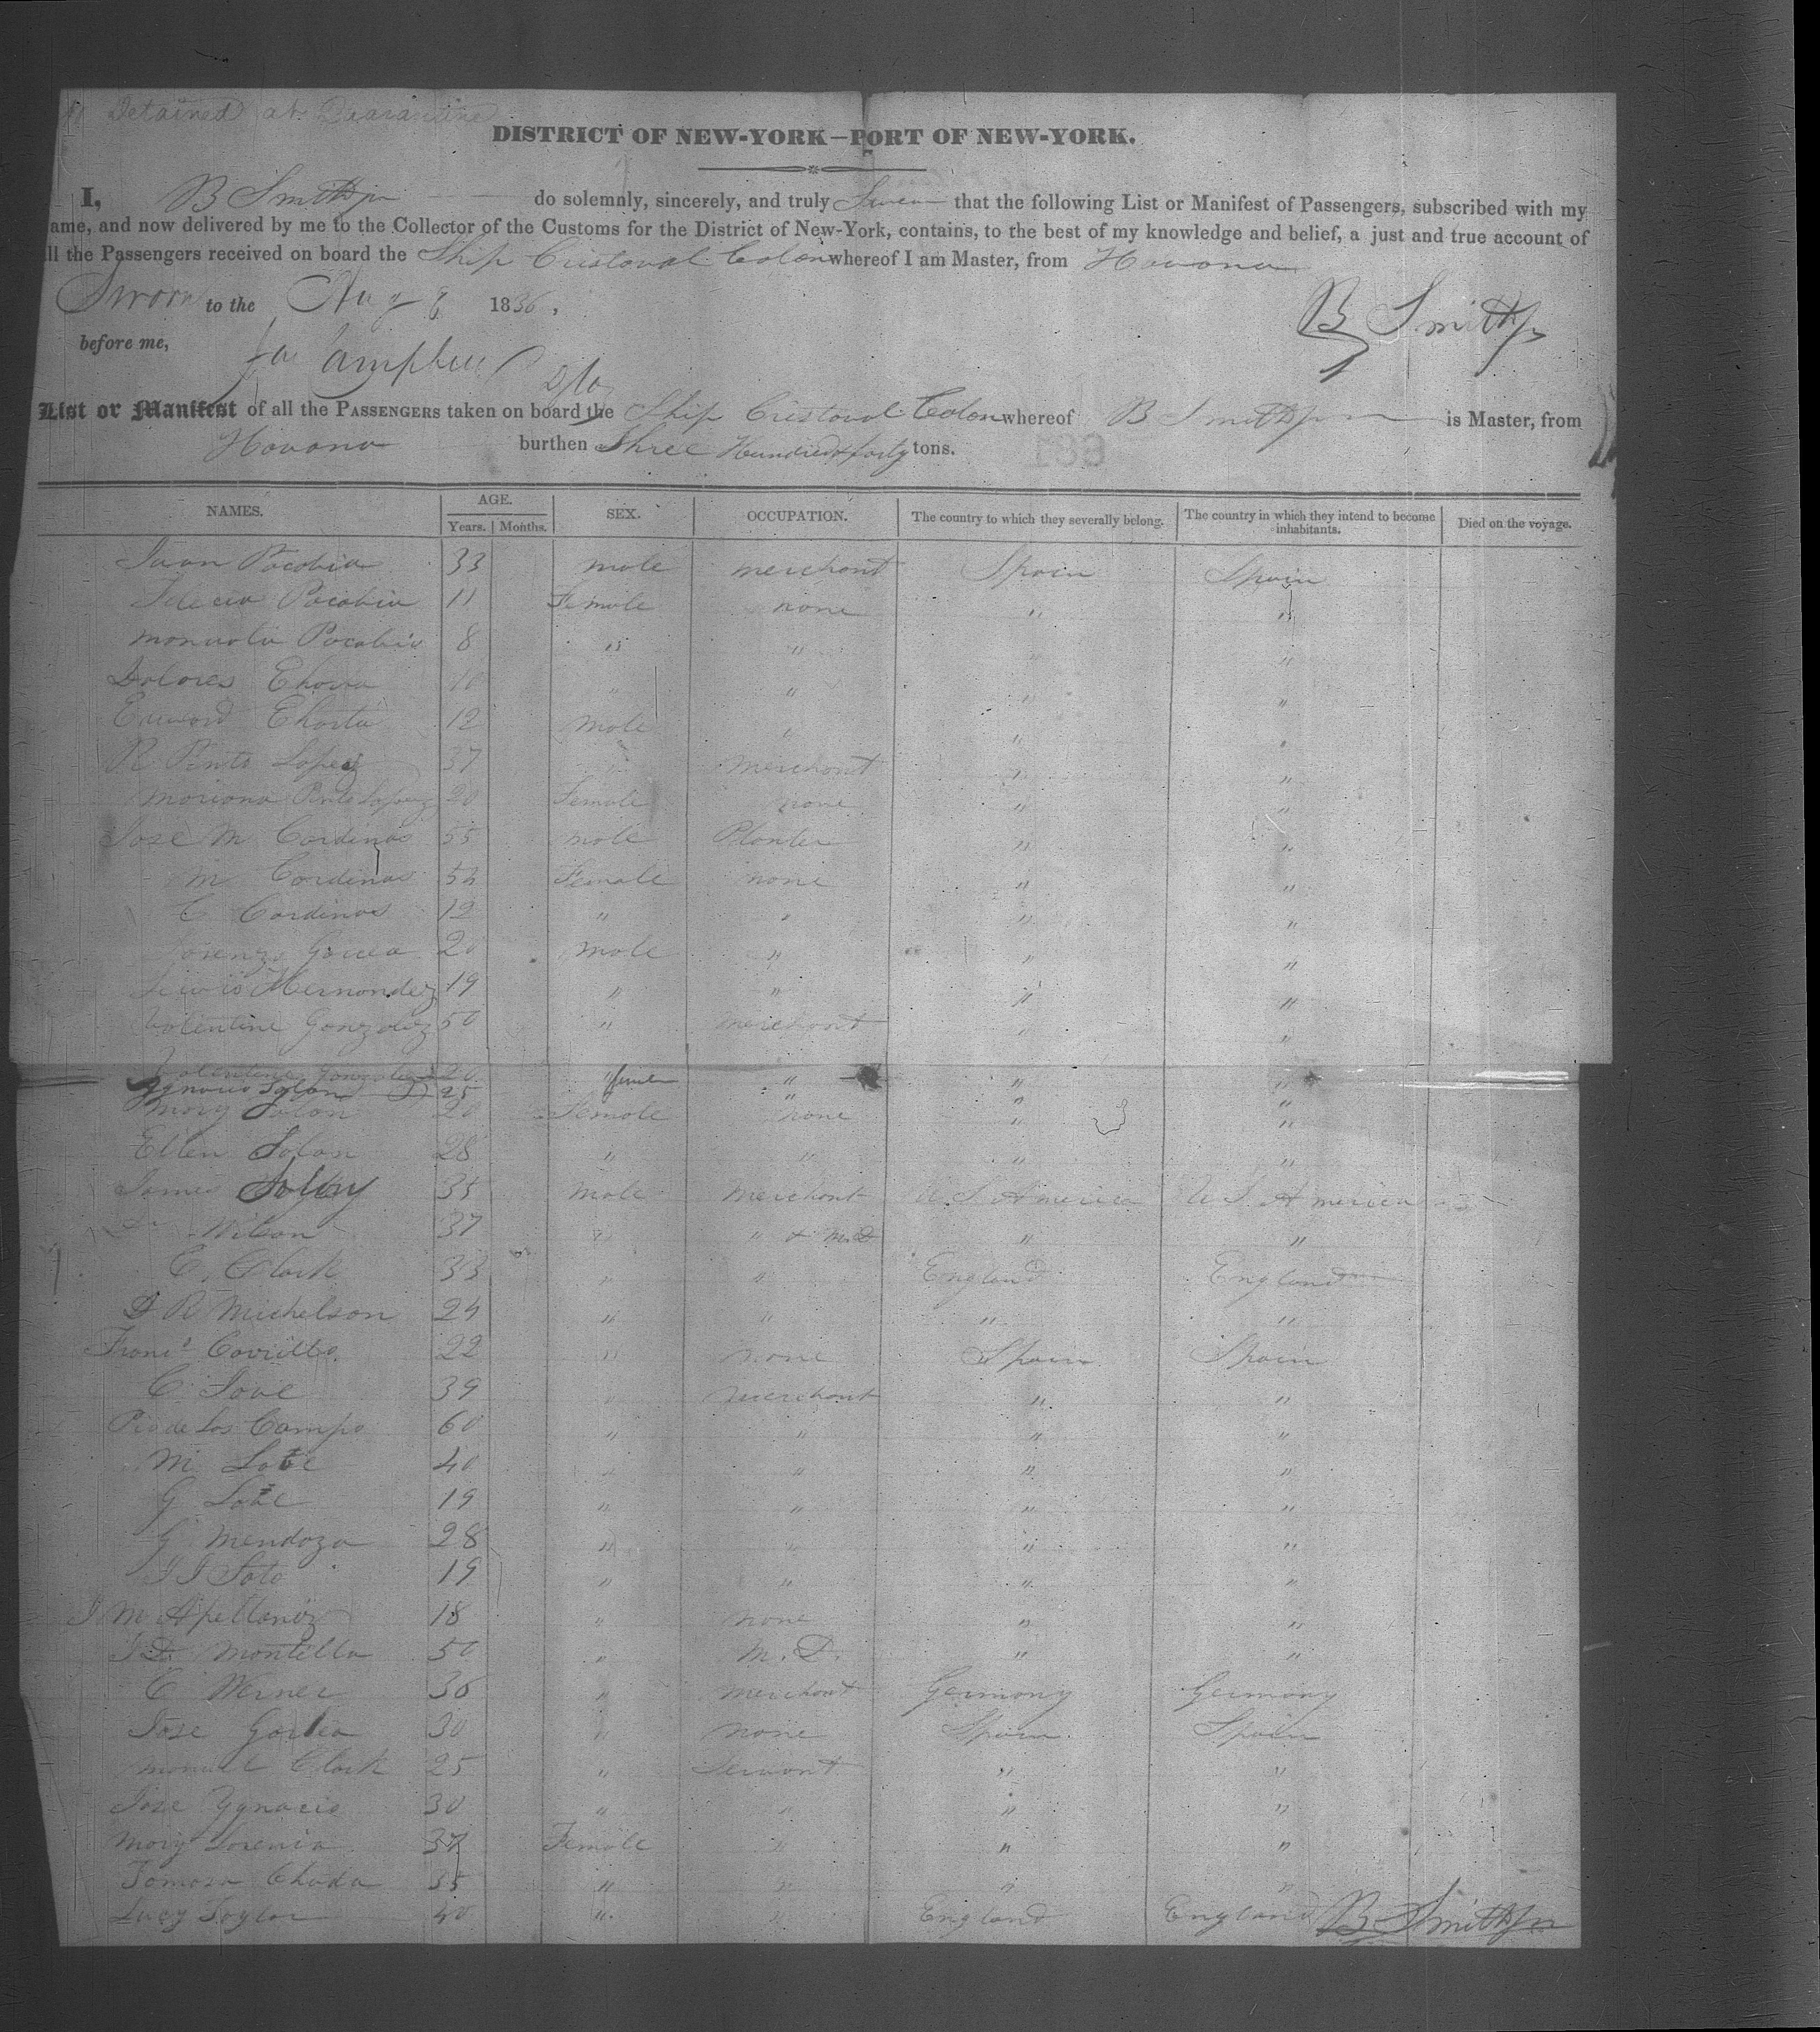 Detained at Quarantine
DISTRICT OF NEW-YORK—PORT OF NEW-YORK.
I, B Smith jr do solemnly, sincerely, and truly Swear that the following List or Manifest of Passengers, subscribed with my
ame, and now delivered by me to the Collector of the Customs for the District of New-York, contains, to the best of my knowledge and belief, a just and true account of
ll the Passengers received on board the Ship Cristoval Colon whereof I am Master, from Havana
Sworn to the Aug 8 1836.
B Smith jr
before me,
Campbell
List or Manifest of all the PASSENGERS taken on board the Ship Cristoval Colon whereof B Smith jr is Master, from
Havana burthen Three Hundred & forty tons.
NAMES. AGE. Years. Months. SEX. OCCUPATION. The country to which they severally belong. The country in which they intend to become inhabitants. Died on the voyage.
Juan Pacobia 33 male merchant Spain Spain
Pacobia 11 Female none " "
Manuela Pacobia 8 " " " "
Dolores 10 " " " "
12 male " " "
R Pinto Lopez 37 " merchant " "
Mariana Pinto Lopez 20 Female none " "
Jose M Cardinas 55 male Planter " "
M Cardinas 52 Female none " "
C Cardinas 12 " " " "
Lorenzo Garcia 20 male " " "
Lewis Hernandez 19 " " " "
Valentine Gonzalez 50 " merchant " "
Valentine Gonzalez 20 " " " "
Ygnacio Solan 25 " " "
Mary Solan 20 Female none " "
Ellen Solan 28 " " " "
James 35 male merchant U.S. America U.S. America
Dr Wilson 37 " " & M.D " "
C. Clark 33 " " England England
D R Michelson 24 " " " "
Franc. Carrillo 22 " none Spain Spain
C 39 " merchant " "
Pio de los Campo 60 " " " "
M 40 " " " "
G 19 " " " "
G Mendoza 28 " " " "
J J Soto 19 " " " "
J M Apellaniz 18 " none " "
J D. Montilla 50 " M. D. " "
C Werner 36 " merchant Germany Germany
Jose Garcia 30 " none Spain Spain
Manuel Clark 25 " Servant " "
Jose Ygnacio 30 " " " "
Mary Lorenia Female " " "
Tomasa 35 " " " "
Lucy Taylor 40 " " England England B Smith jr